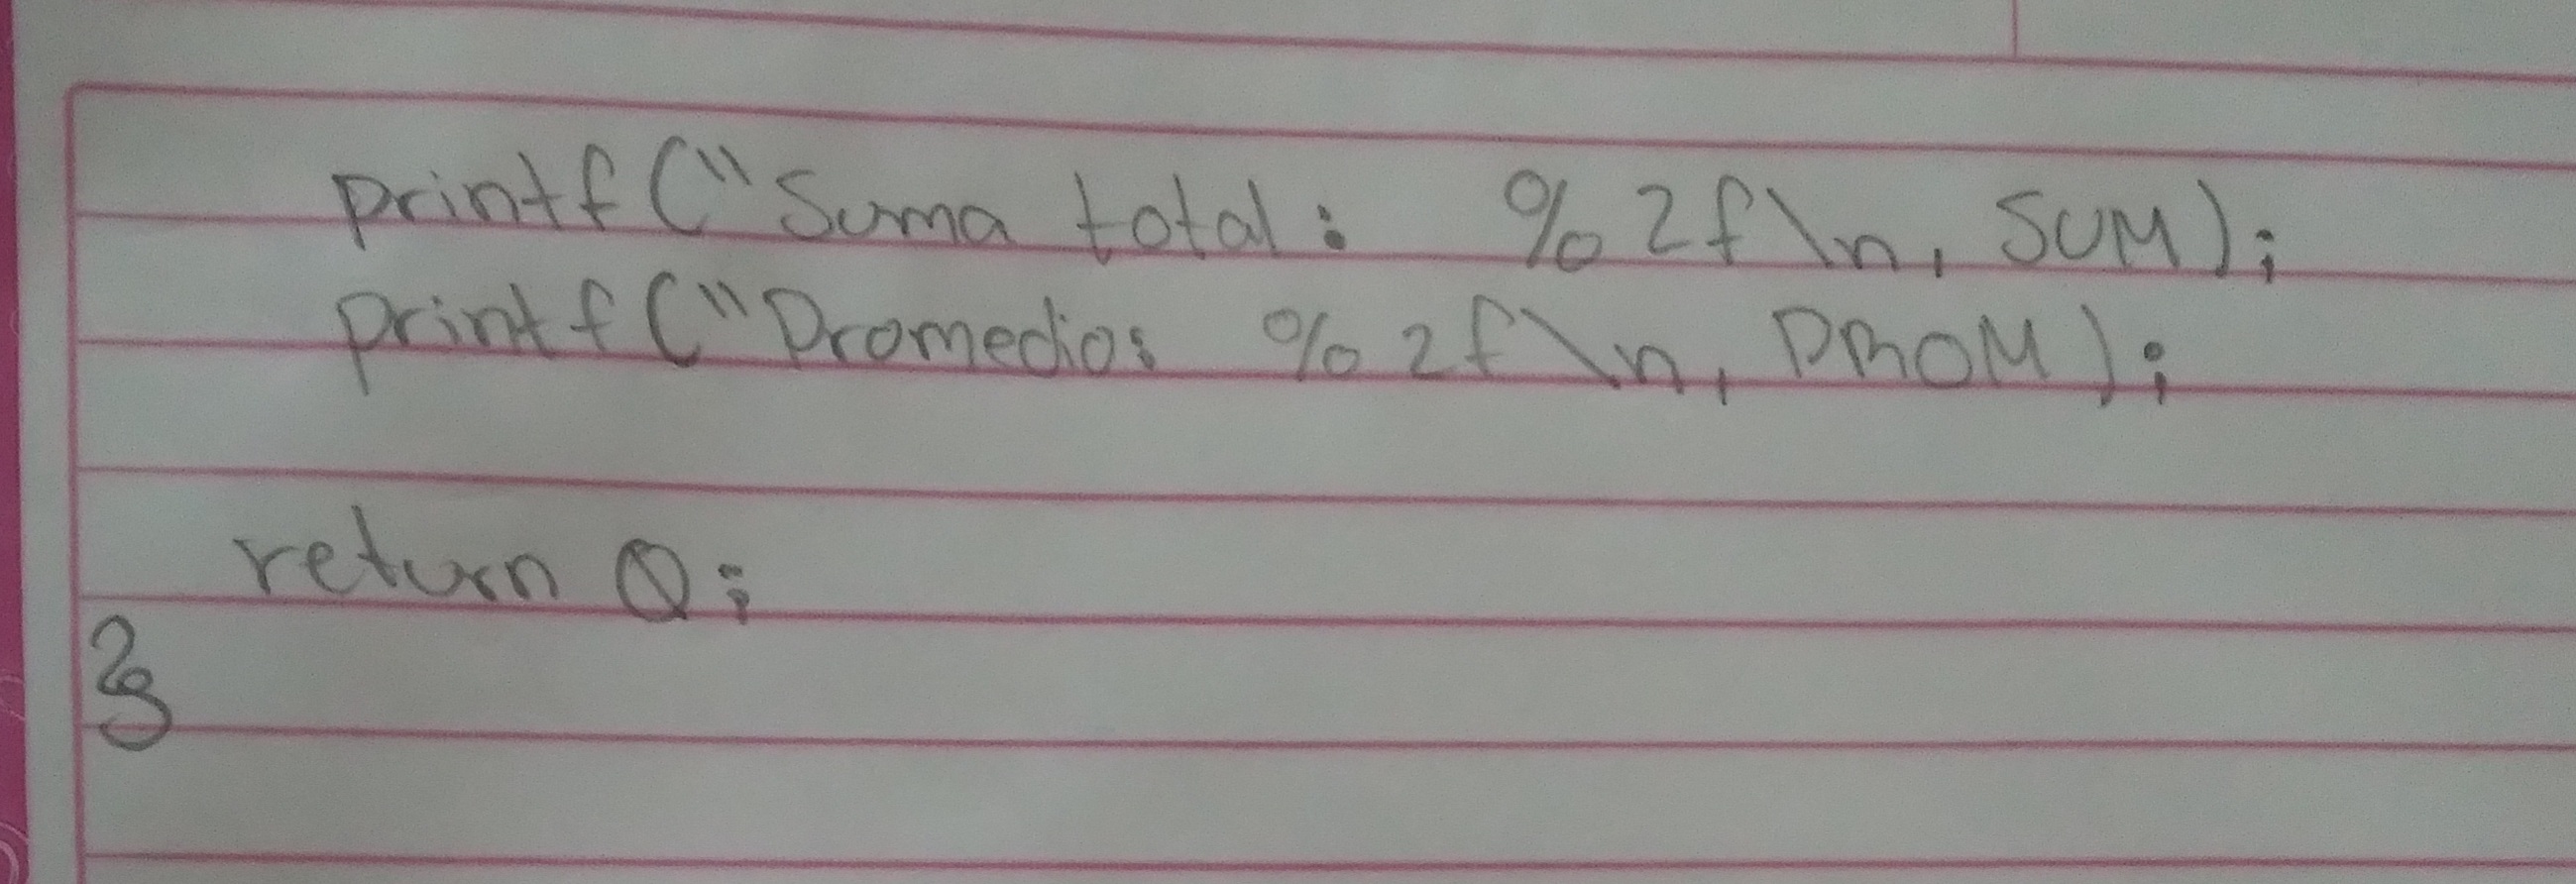 printf("Suma total: %2f\n, SUM);
printf("Promedio: %2f\n, PROM);
return 0;
}